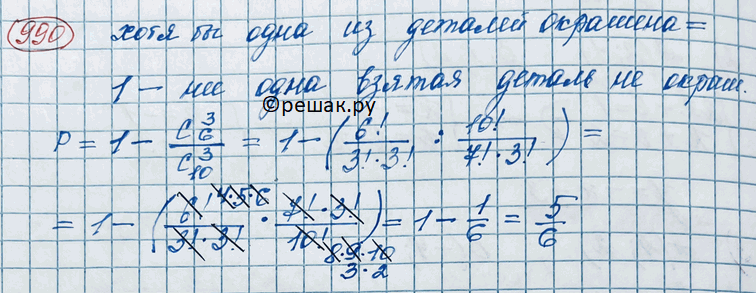 990 хотя бы одна из деталей окрашена =
1 - ни одна взятая деталь не окраш.
©решак.ру
P = 1 - C₆³ / C₁₀³ = 1 - (6! / 3!·3! : 10! / 7!·3!) =
= 1 - (6! 4·5·6 / 3!·3! · 7!·3! / 10! 8·9·10 3·2) = 1 - 1/6 = 5/6